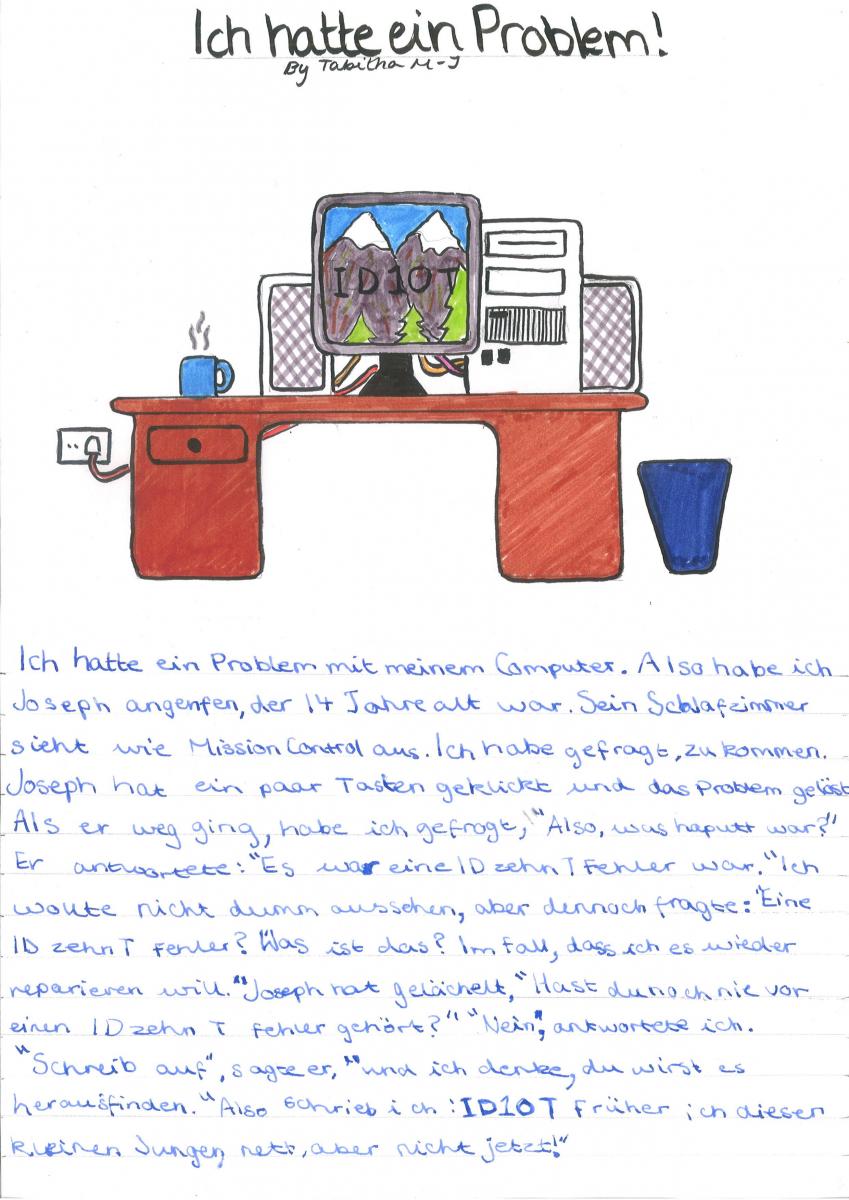 Ich hatte ein Problem!
By Tabitha M-J
ID10T
Ich hatte ein Problem mit meinem Computer. Also habe ich
Joseph angenfen, der 14 Jahre alt war. Sein Schlafzimmer
sieht wie Mission Control aus. Ich habe gefragt, zu kommen.
Joseph hat ein paar Tasten geklickt und das Problem gelöst
Als er weg ging, habe ich gefragt, "Also, was kaputt war?"
Er antwortete: "Es war eine ID zehn T Fehler war." Ich
wollte nicht dumm aussehen, aber dennoch fragte: "Eine
ID zehn T Fehler? Was ist das? Im fall, dass ich es wieder
reparieren will." Joseph hat gelächelt, "Hast du noch nie vor
einen ID zehn T Fehler gehört?" "Nein", antwortete ich.
"Schreib auf", sagte er, "und ich denke, du wirst es
herausfinden." Also schrieb ich: ID10T Früher ich dieser
kleinen Jungen nett, aber nicht jetzt!"